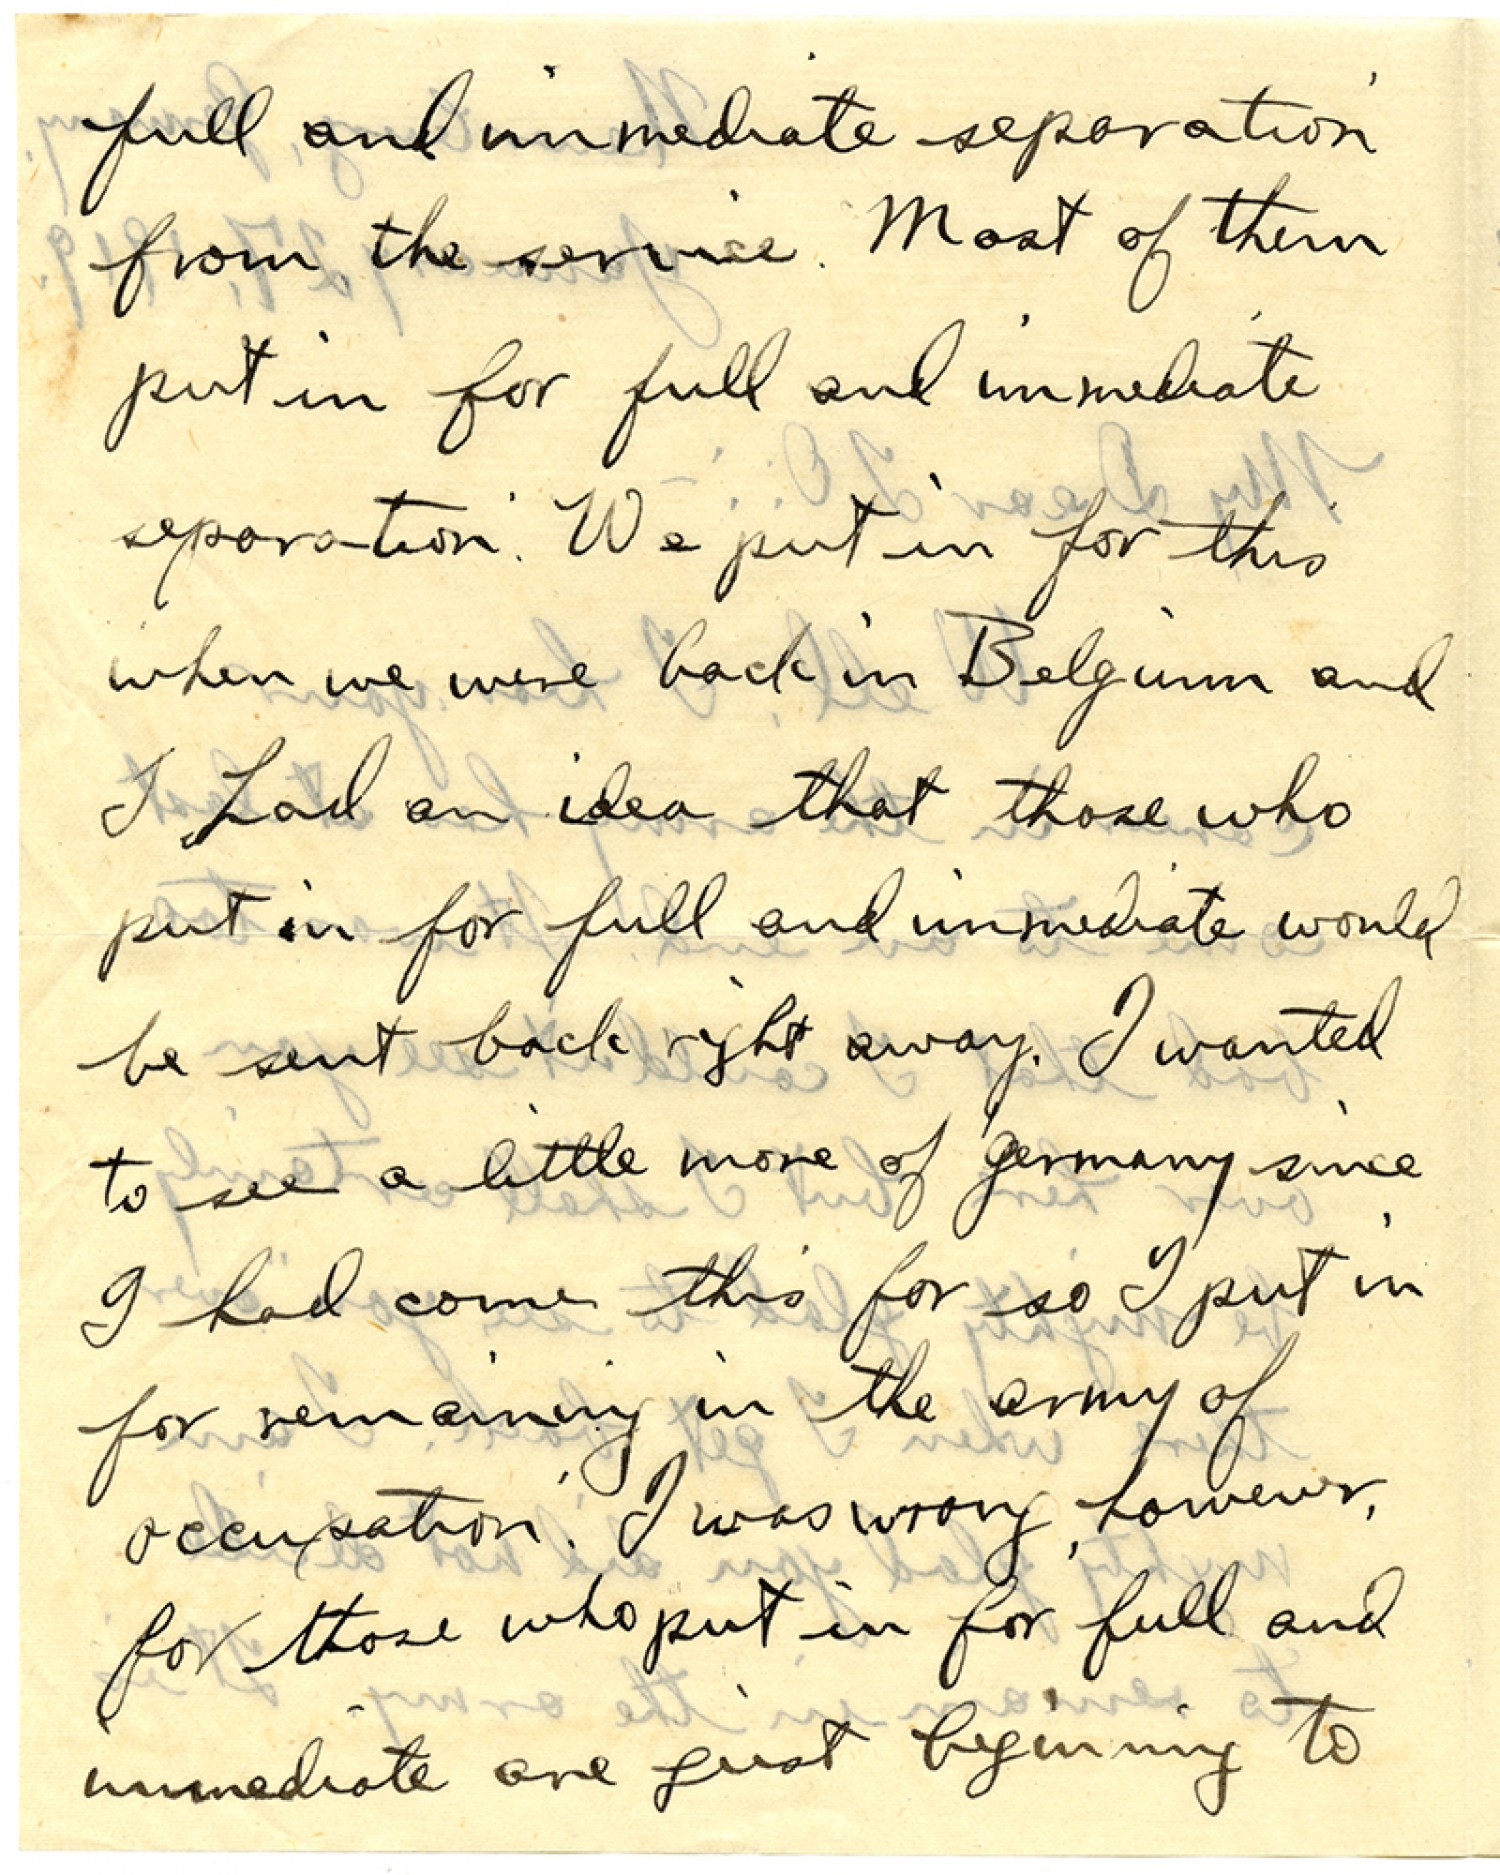 full and immediate separation
from the service. Most of them
put in for full and immediate
separation. We put in for this
when we were back in Belgium and
I had an idea that those who
put in for full and immediate would
be sent back right away. I wanted
to see a little more of Germany since
I had come this far so I put in
for remaining in the army of
occupation. I was wrong, however,
for those who put in for full and
immediate are just begining to